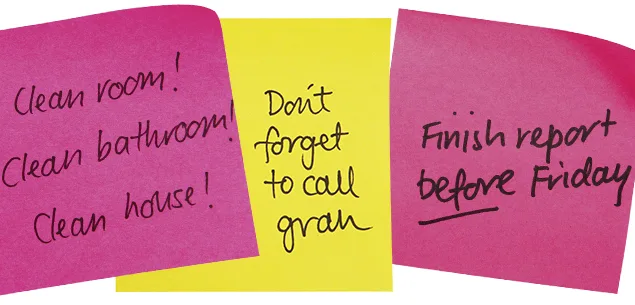 Clean room!
Clean bathroom!
Clean house!
Don't
forget
to call
gran
Finish report
before Friday